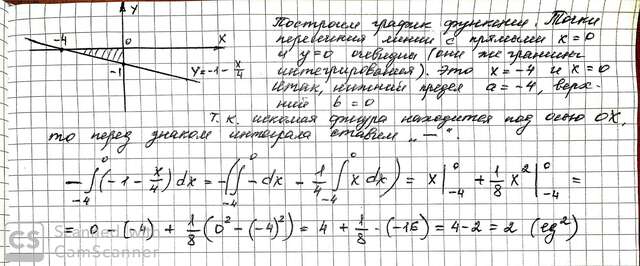 Y
-4
0
X
-1
Y=-1-x/4
Построим график функции. Точки
пересечения линии с прямыми x=0
и y=0 очевидны (они же границы
интегрирования). Это x=-4 и x=0
итак, нижний предел a=-4, верх-
ний b=0
Т.к. искомая фигура находится под осью OX,
то перед знаком интеграла ставим „—".
-∫₋₄⁰(-1-x/4)dx=-(∫₋₄⁰-dx-1/4∫₋₄⁰x dx)=x|₋₄⁰+1/8x²|₋₄⁰=
=0-(-4)+1/8(0²-(-4)²)=4+1/8·(-16)=4-2=2 (ед²)
CS Scanned with
CamScanner